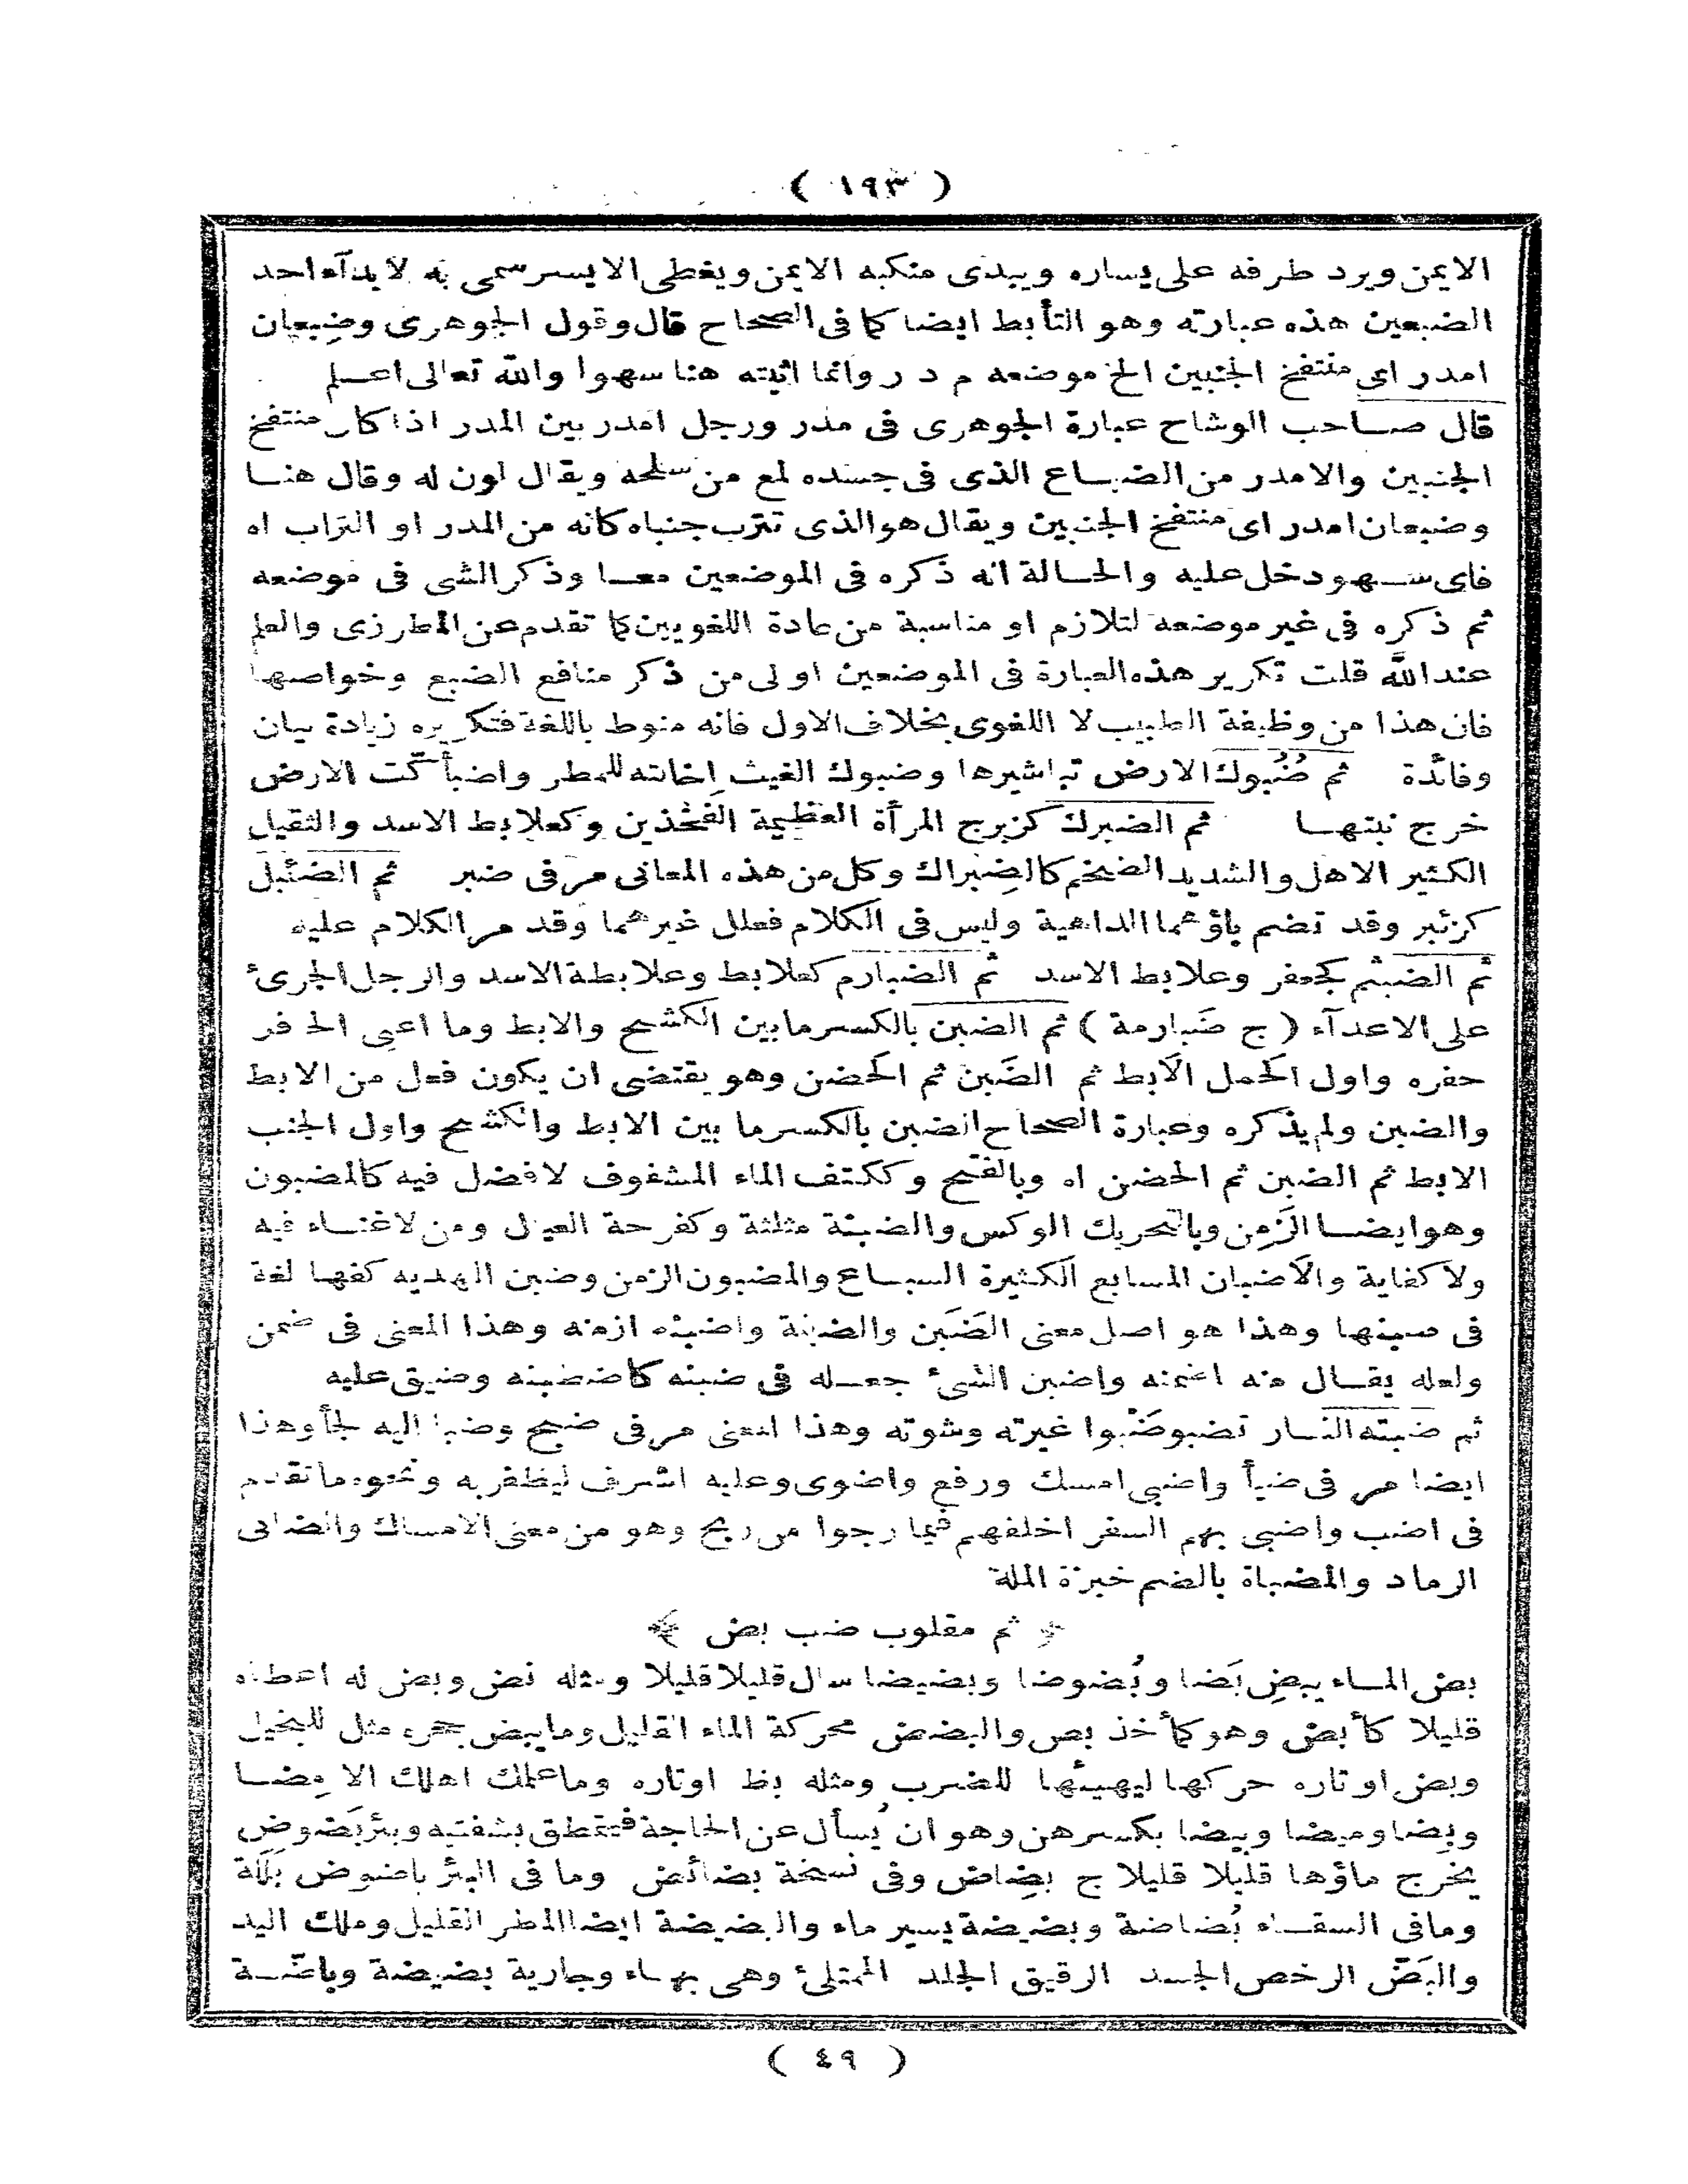 ( ١٩٣ )
الايمن ويرد طرفه على يساره ويبدى منكبه الايمن ويغطى الايسر سمى به لابدآء احد
الضبعين هذه عبارته وهو التأبط ايضا كما فى الصحاح قال وقول الجوهرى وضِبعان
امدر اى منتفخ الجنبين الخ موضعه م د ر وانما اثبته هنا سهوا والله تعالى اعـلم
قال صـاحب الوشاح عبارة الجوهرى فى مدر ورجل امدر بين المدر اذا كان منتفخ
الجنبين والامدر من الضبـاع الذى فى جسده لمع من سلحه ويقال لون له وقال هنـا
وضبعان امدر اى منتفخ الجنبين ويقال هو الذى تترب جنباه كانه من المدر او التراب اه
فاى سـهو دخل عليه والحـالة انه ذكره فى الموضعين معـا وذكر الشى فى موضعه
ثم ذكره فى غير موضعه لتلازم او مناسبة من عادة اللغويين كما تقدم عن المطرزى والعلم
عند الله قلت تكرير هذه العبارة فى الموضعين اولى من ذكر منافع الضبع وخواصها
فان هذا من وظيفة الطبيب لا اللغوى بخلاف الاول فانه منوط باللغة فتكريره زيادة بيان
وفائدة ثم ضُبُوك الارض تباشيرها وضبوك الغيث اخالته للمطر واضبأكت الارض
خرج نبتهـا ثم الضبرك كزبرج المرأة العظيمة الفخذين وكعلابط الاسد والثقيل
الكثير الاهل والشديد الضخم كالضِبراك وكل من هذه المعانى مر فى ضبر ثم الضئبل
كزئبر وقد تضم باؤهما الداهية وليس فى الكلام فعلل غيرهما وقد مر الكلام عليه
ثم الضبثم كجعفر وعلابط الاسد ثم الضبارم كعلابط وعلابطة الاسد والرجل الجرئ
على الاعدآء ( ج ضَبارمة ) ثم الضبن بالكسر مابين الكشح والابط وما اعيى الحافر
حفره واول الحمل الاَبط ثم الضَبن ثم الحَضن وهو يقتضى ان يكون فعل من الابط
والضبن ولم يذكره وعبارة الصحاح الضبن بالكسر ما بين الابط والكشح واول الجنب
الابط ثم الضبن ثم الحضن اه وبالفتح وككتف الماء المشفوف لا فضل فيه كالمضبون
وهو ايضـا الزَمِن وبالتحريك الوكس والضبنة مثلثة وكفرحة العيال ومن لا غنـاء فيه
ولا كفاية والاَضبان المسابع الكثيرة السبـاع والمضبون الزمن وضبن الهديه كفها لغة
فى صبنها وهذا هو اصل معنى الضَبَن والضبنة واضبنه ازمنه وهذا المعنى فى ضمن
ولعله يقـال منه اضمنه واضبن الشئ جعـله فى ضبنه كاضطبنه وضيق عليه
ثم ضبته النـار تضبو ضَبْوا غيرته وشوته وهذا المعنى مر فى ضبح وضبا اليه لجأ وهذا
ايضا مر فى ضبأ واضبى امسك ورفع واضوى وعليه اشرف ليظفر به ونحوه ما تقدم
فى اضب واضبى بهم السفر اخلفهم فيما رجوا من ربح وهو من معنى الامساك والضابى
الرماد والمضباة بالضم خبزة الملة
﴿ ثم مقلوب ضب بض ﴾
بض المـاء يبضِ بَضا وبُضوضا وبضيضا سال قليلا قليلا ومثله نض وبض له اعطاه
قليلا كأبض وهو كمأخذ بص والبضض محركة الماء القليل وما يبض حجره مثل للبخيل
وبض اوتاره حركها ليهيئها للضرب ومثله بظ اوتاره وما علمك اهلك الا مِضـا
وبِضا وميضا وبيضا بكسرهن وهو ان يُسأل عن الحاجة فيتمطق بشفتيه وبئر بَضوض
يخرج ماؤها قليلا قليلا ج بِضاض وفى نسخة بضائض وما فى البئر باضوض بَلَلة
وما فى السقـاء بُضاضة وبضيضة يسير ماء والبضيضة ايضا المطر القليل وملك اليد
والبَضّ الرخص الجسد الرقيق الجلد الممتلئ وهى بهـاء وجارية بضيضة وباضّـة
( ٤٩ )